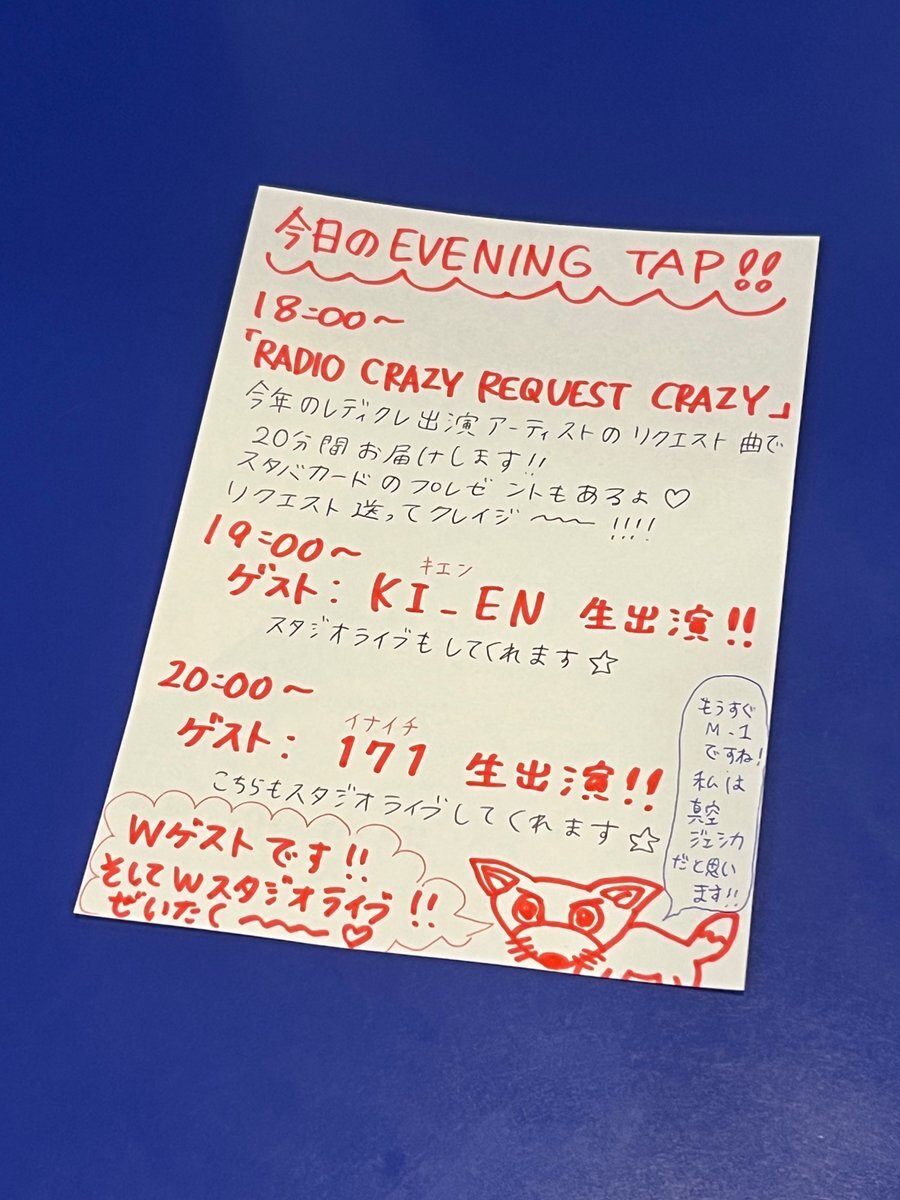 今日のEVENING TAP!!
18:00〜
「RADIO CRAZY REQUEST CRAZY」
今年のレディクレ出演アーティストのリクエスト曲で
20分間お届けします!!
スタバカードのプレゼントもあるよ♡
リクエスト送ってクレイジ〜〜〜!!!!
19:00〜
キエン
ゲスト: KI_EN 生出演!!
スタジオライブもしてくれます☆
20:00〜
イナイチ
ゲスト: 171 生出演!!
こちらもスタジオライブしてくれます☆
Wゲストです!!
そしてWスタジオライブ!!
ぜいたく〜〜〜♡
もうすぐ
M-1
ですね!
私は
真空
ジェシカ
だと思い
ます!!